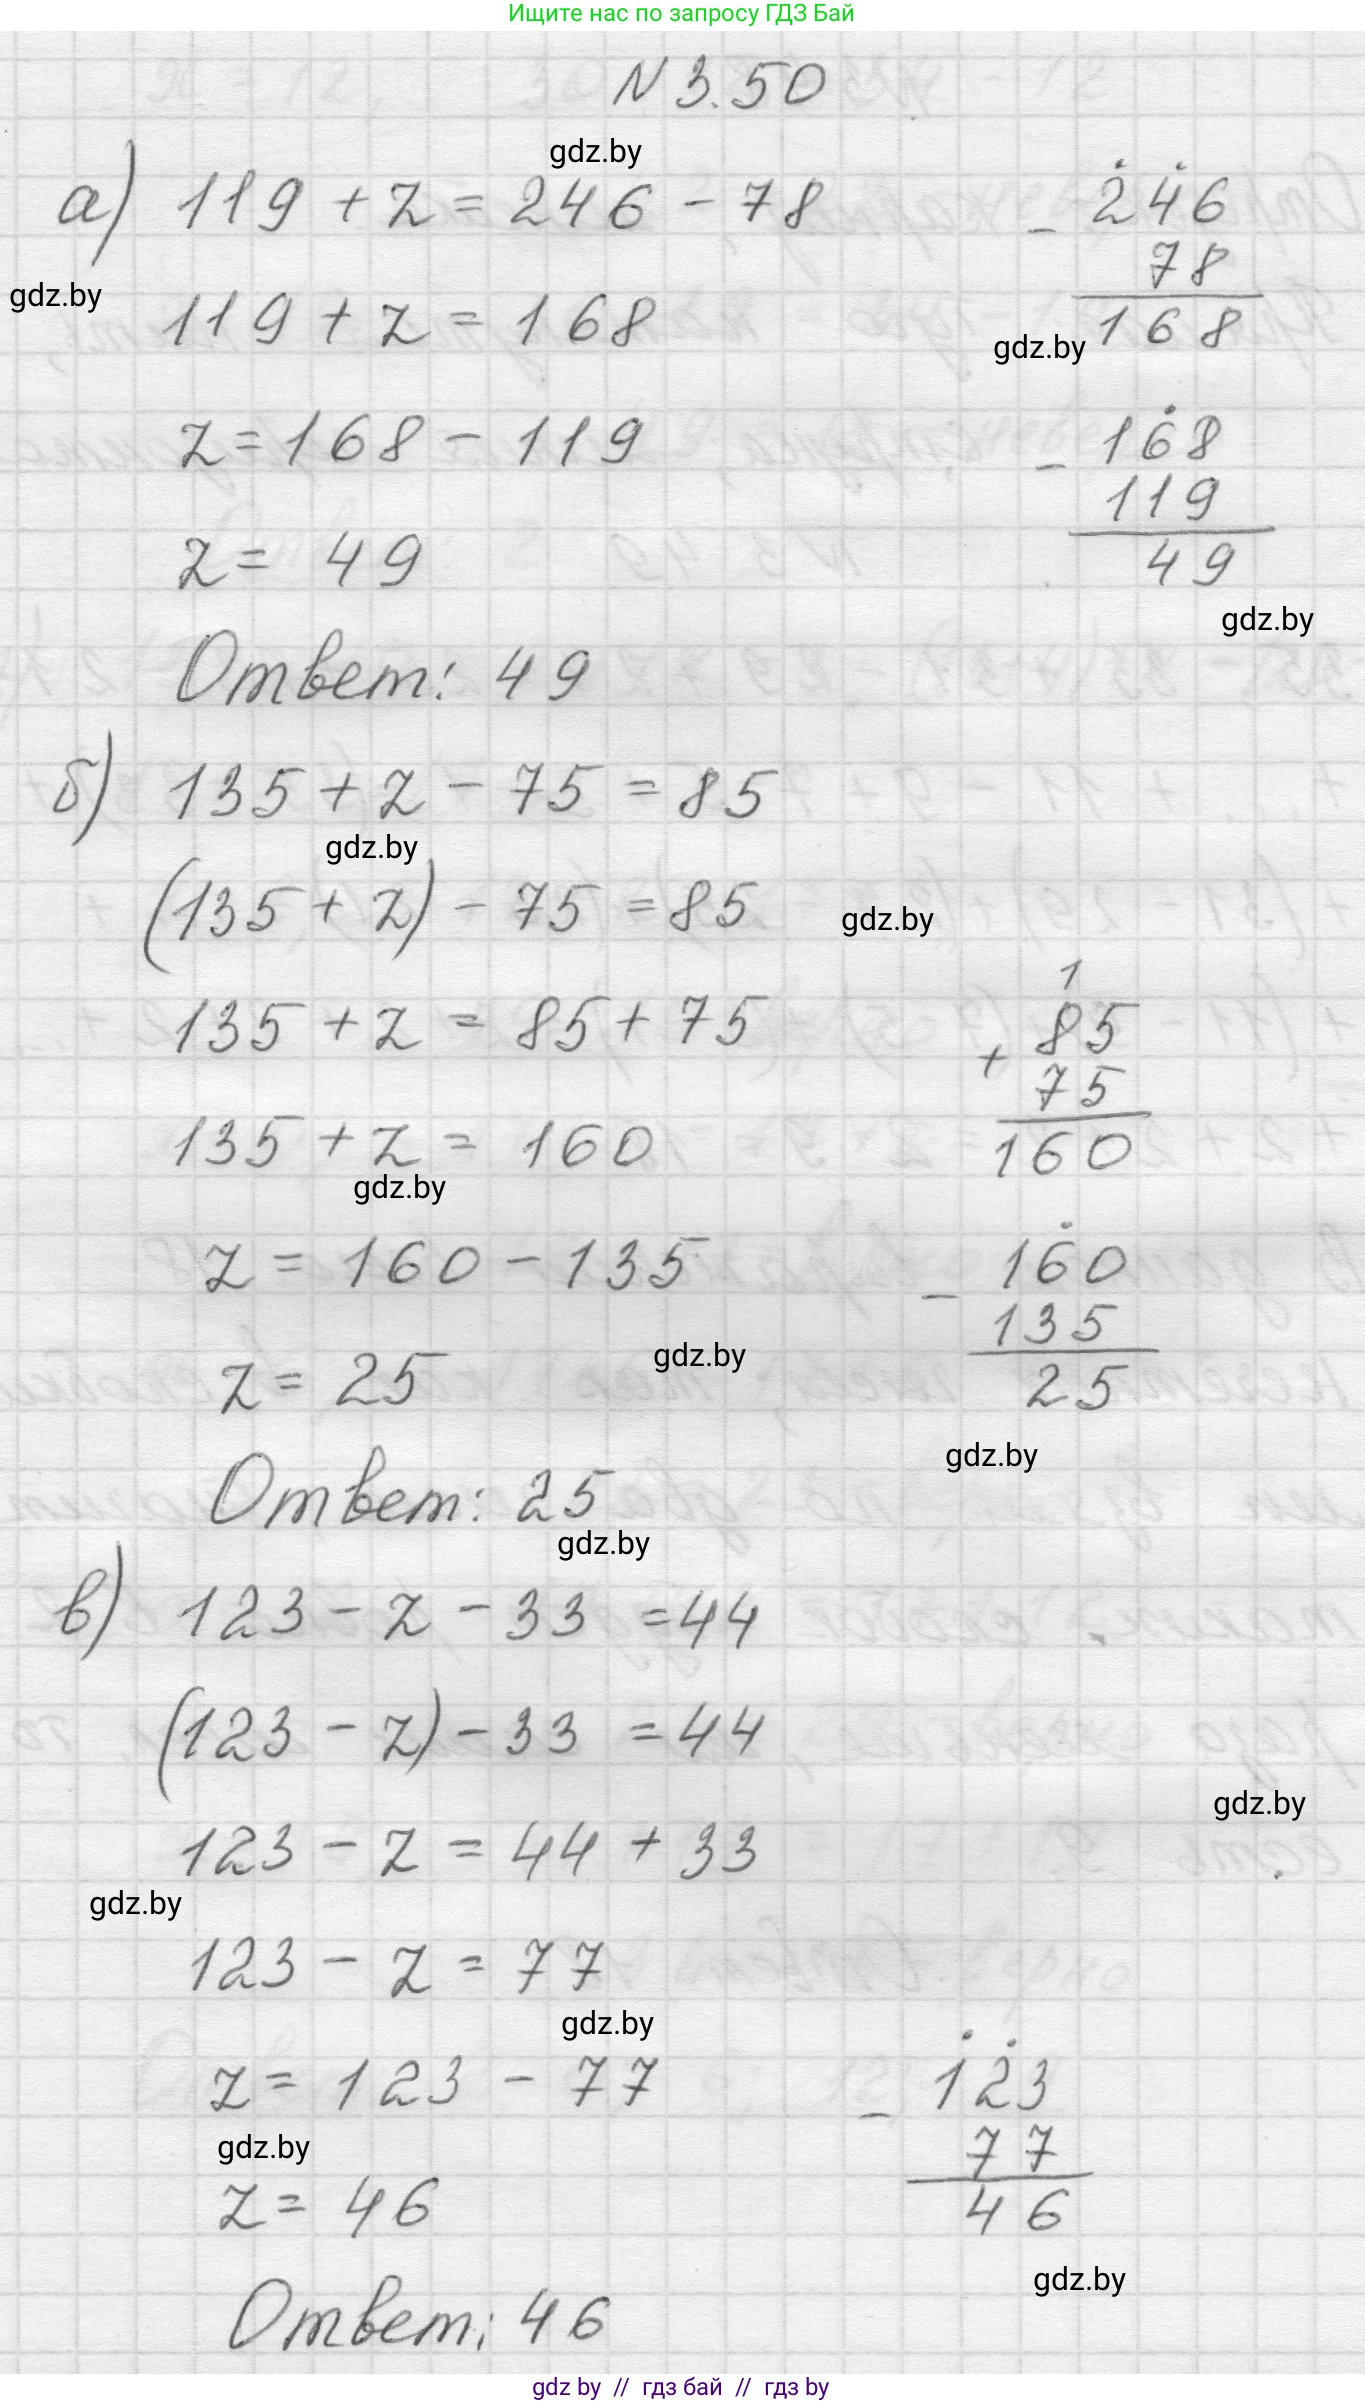 Ищите нас по запросу ГДЗ Бай
N 3.50
gdz.by
а) 119 + z = 246 - 78
- 246
78
168
gdz.by
119 + z = 168
gdz.by
z = 168 - 119
- 168
119
49
z = 49
gdz.by
Ответ: 49
б) 135 + z - 75 = 85
gdz.by
(135 + z) - 75 = 85
gdz.by
135 + z = 85 + 75
1
+ 85
75
160
135 + z = 160
gdz.by
z = 160 - 135
- 160
135
25
gdz.by
z = 25
gdz.by
Ответ: 25
gdz.by
в) 123 - z - 33 = 44
(123 - z) - 33 = 44
gdz.by
123 - z = 44 + 33
gdz.by
123 - z = 77
gdz.by
z = 123 - 77
- 123
77
46
gdz.by
z = 46
gdz.by
Ответ: 46
gdz by // гдз бай // гдз by